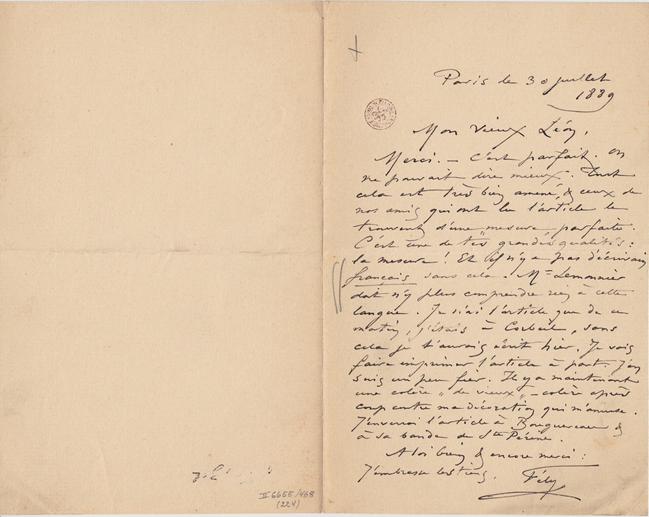 Paris le 30 juillet
1889
Mon vieux Léon,
Merci. – C'est parfait. on
ne pouvait dire mieux. Tout
cela est très bien amené, & ceux de
nos amis qui ont lu l'article le
trouvent d'une "mesure" parfaite.
C'est une de tes grandes qualités :
la mesure ! Et il n'y a pas d'écrivain
français sans cela. Mr Lemonnier
doit n'y plus comprendre rien à cette
langue. Je n'ai l'article que de ce
matin, j'étais à Corbeil, sans
cela je t'aurais écrit hier. Je vais
faire imprimer l'article à part. J'en
suis un peu fier. Il y a maintenant
une colère "de vieux" – colère après
coup contre ma décoration qui m'amuse.
J'enverrai l'article à Bouguereau &
à sa bande de Ste Périne.
A toi bien & encore merci :
J'embrasse les tiens. Fély
II 6655/468
(224)